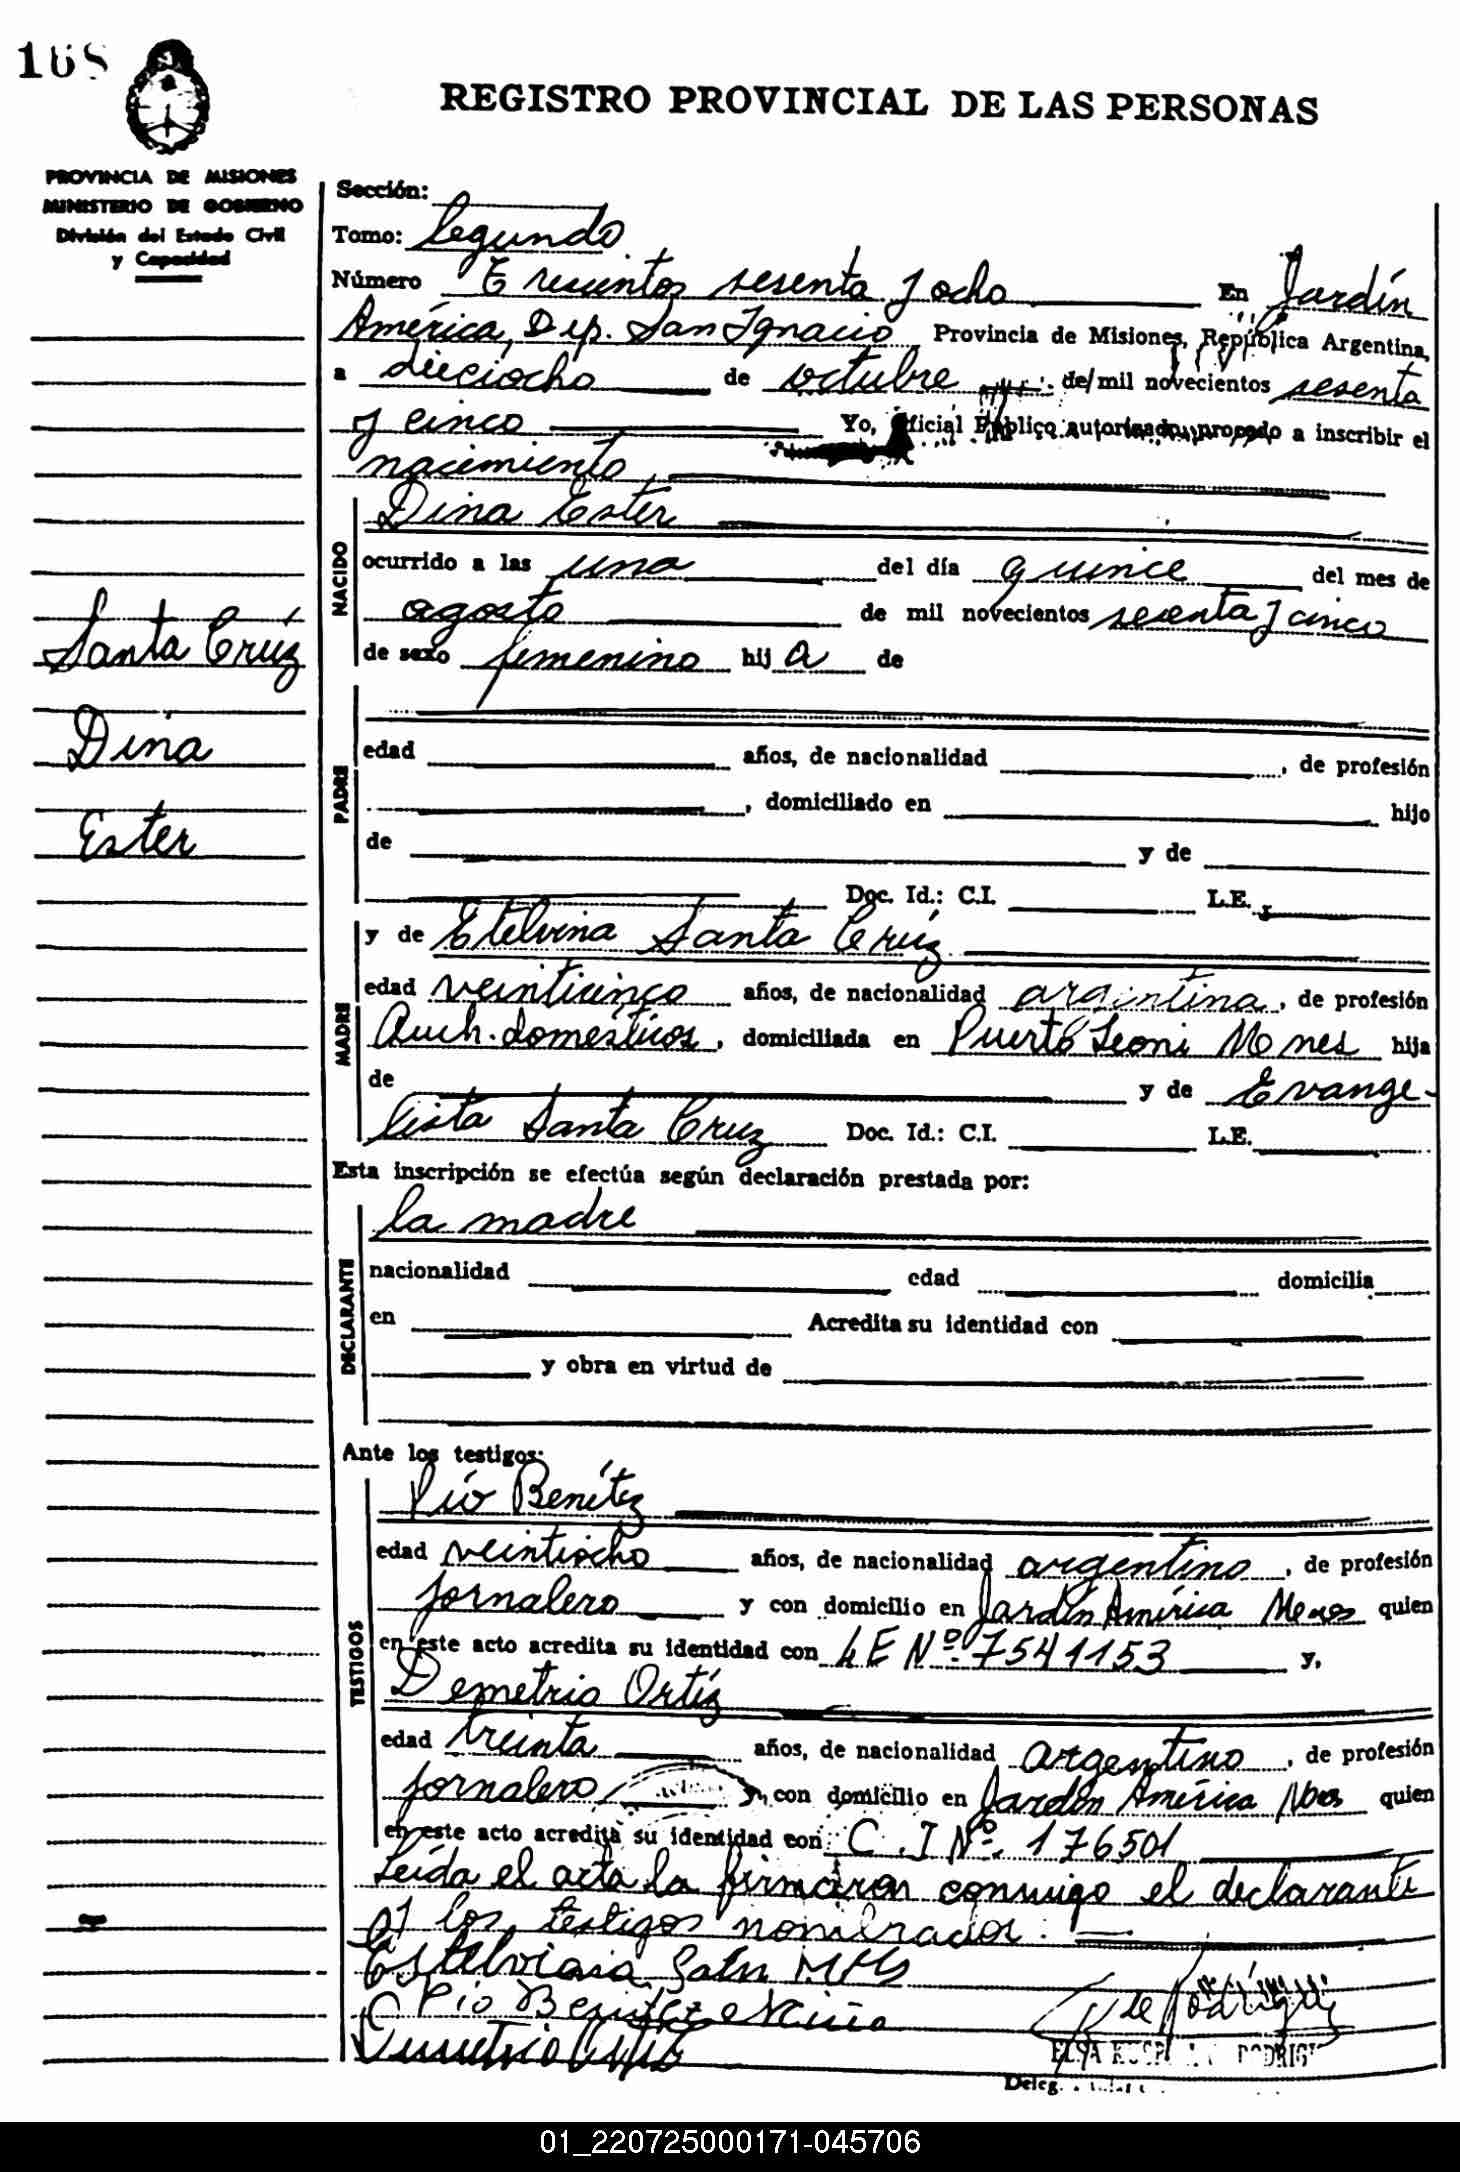 168
REGISTRO PROVINCIAL DE LAS PERSONAS
PROVINCIA DE MISIONES
MINISTERIO DE GOBIERNO
División del Estado Civil
y Capacidad
Santa Crúz
Dina
Ester
Sección:
Tomo: Segundo
Número Trescientos sesenta y ocho En Jardín
América, Dep. San Ignacio Provincia de Misiones, República Argentina,
a dieciocho de octubre de mil novecientos sesenta
y cinco Yo, Oficial Público autorizado, procedo a inscribir el
nacimiento
NACIDO
Dina Ester
ocurrido a las una del día quince del mes de
agosto de mil novecientos sesenta y cinco
de sexo femenino hija de
PADRE
edad años, de nacionalidad , de profesión
, domiciliado en hijo
de y de
Doc. Id.: C.I. L.E.
MADRE
y de Etelvina Santa Crúz
edad veinticinco años, de nacionalidad argentina, de profesión
domésticos, domiciliada en Puerto Leoni Mnes hija
de y de Evange-
lista Santa Cruz Doc. Id.: C.I. L.E.
Esta inscripción se efectúa según declaración prestada por:
DECLARANTE
la madre
nacionalidad edad domicilia
en Acredita su identidad con
y obra en virtud de
Ante los testigos:
TESTIGOS
Pío Benítez
edad veintiocho años, de nacionalidad argentino, de profesión
jornalero y con domicilio en Jardín América quien
en este acto acredita su identidad con L E Nº 7541153 y,
Demetrio Ortíz
edad treinta años, de nacionalidad argentino, de profesión
jornalero y con domicilio en Jardín América quien
en este acto acredita su identidad con C.I Nº 176501
Leída el acta la firmaron conmigo el declarante
y los testigos nombrados.
Pio Benitez
Demetrio Ortiz
Deleg.
01_220725000171-045706